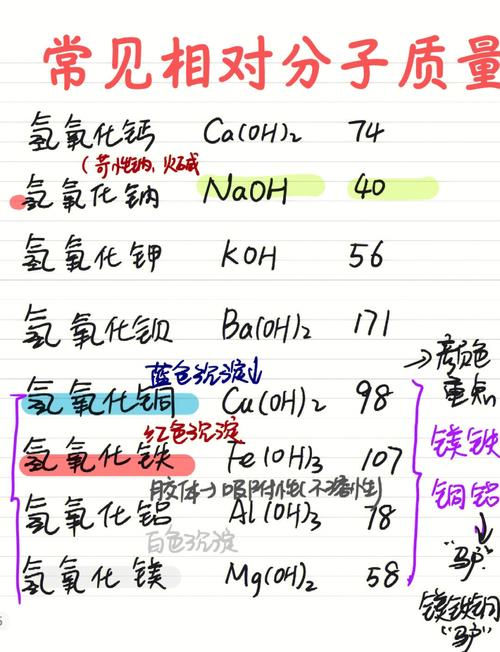 常见相对分子质量
氢氧化钙 Ca(OH)₂ 74
(苛性钠,火碱
氢氧化钠 NaOH 40
氢氧化钾 KOH 56
氢氧化钡 Ba(OH)₂ 171
蓝色沉淀↓
氢氧化铜 Cu(OH)₂ 98
红色沉淀
氢氧化铁 Fe(OH)₃ 107
胶体→吸附性(不溶性)
氢氧化铝 Al(OH)₃ 78
白色沉淀
氢氧化镁 Mg(OH)₂ 58
→颜色
重点
镁铁
铜铝
↓
"驴"
镁铁铜
"驴"